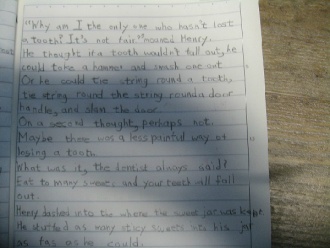 "Why am I the only one who hasn't lost
a tooth? It's not fair" moaned Henry.
He thought if a tooth wouldn't fall out, he
could take a hammer and smash one out
Or he could tie string round a tooth,
tie string round the string round a door
handle, and slam the door.
On a second thought, perhaps not.
Maybe there was a less painful way of
losing a tooth.
What was it, the dentist always said?
Eat to many sweet and your teeth all fall
out.
Henry dashed into the where the sweet jar was kept.
He stuffed as many sticy sweets into his
as fas as he could.